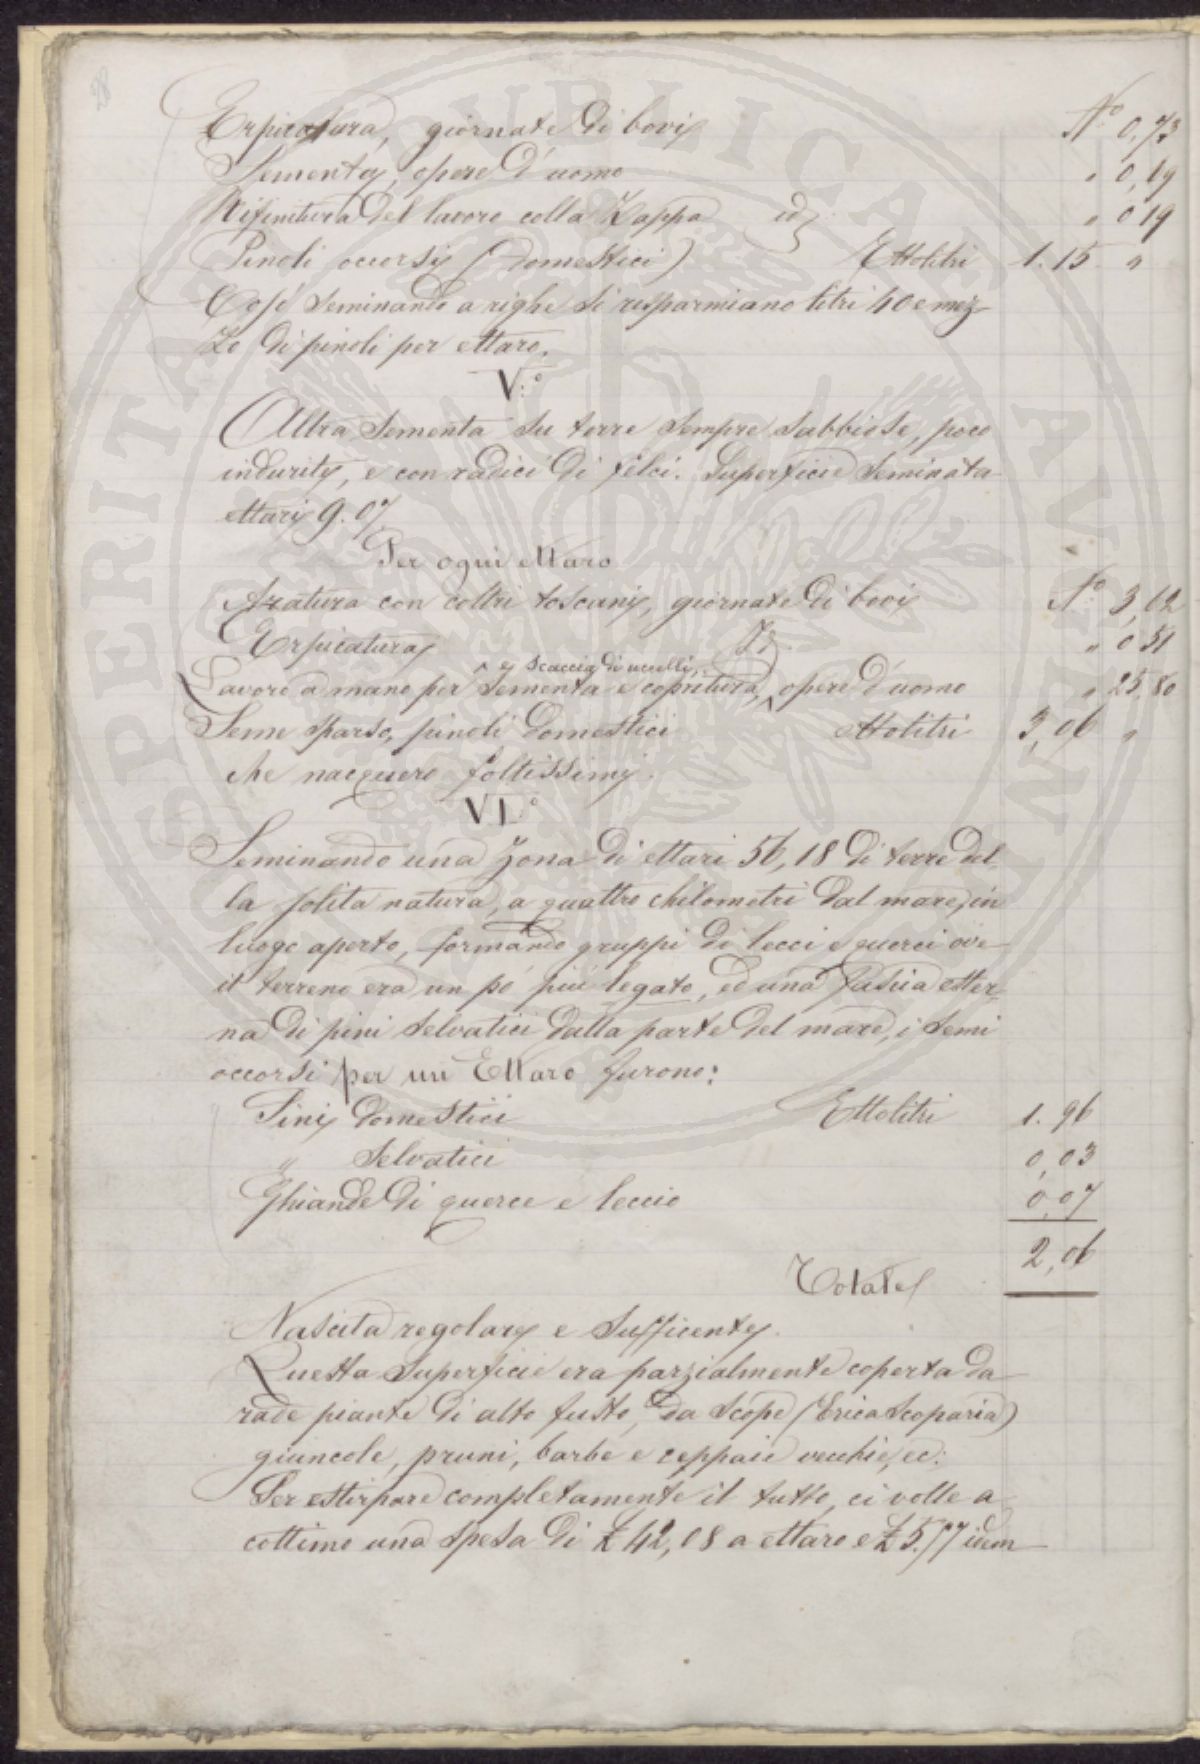 28
Erpicatura, giornate di bovi N.° 0,73
Sementa, opere d'uomo " 0,19
Rifinitura del lavoro colla Zappa id. " 0 19
Pinoli occorsi (domestici) Ettolitri 1.15 "
Così seminando a righe si risparmiano litri 40 e mez
zo di pinoli per ettaro.
V.°
Altra sementa su terre sempre sabbiose, poco
indurite, e con radici di felci. Superficie seminata
ettari 9.07
Per ogni ettaro
Aratura con coltri toscani, giornate di bovi N.° 3,12
Erpicatura Id. " 0 51
e scaccia di uccelli,
Lavoro a mano per sementa e copritura, opere d'uomo " 25,80
Seme sparso, pinoli domestici ettolitri 3,06 "
che nacquero foltissimi.
VI.°
Seminando una zona di ettari 56,18 di terre del
la solita natura, a quattro chilometri dal mare, in
luogo aperto, formando gruppi di lecci e querci ove
il terreno era un pò più legato, ed una fascia ester
na di pini selvatici dalla parte del mare, i semi
occorsi per un Ettaro furono:
Pini domestici Ettolitri 1.96
" Selvatici 0,03
Ghiande di querce e leccio 0,07
2,06
Totale
Nascita regolare e sufficente.
Questa superficie era parzialmente coperta da
rade piante di alto fusto, da scope (Erica Scoparia)
giuncole, pruni, barbe e ceppaie vecchie, ec.
Per estirpare completamente il tutto, ci volle a
cottimo una spesa di £ 42,08 a ettaro e £ 5.77 idem